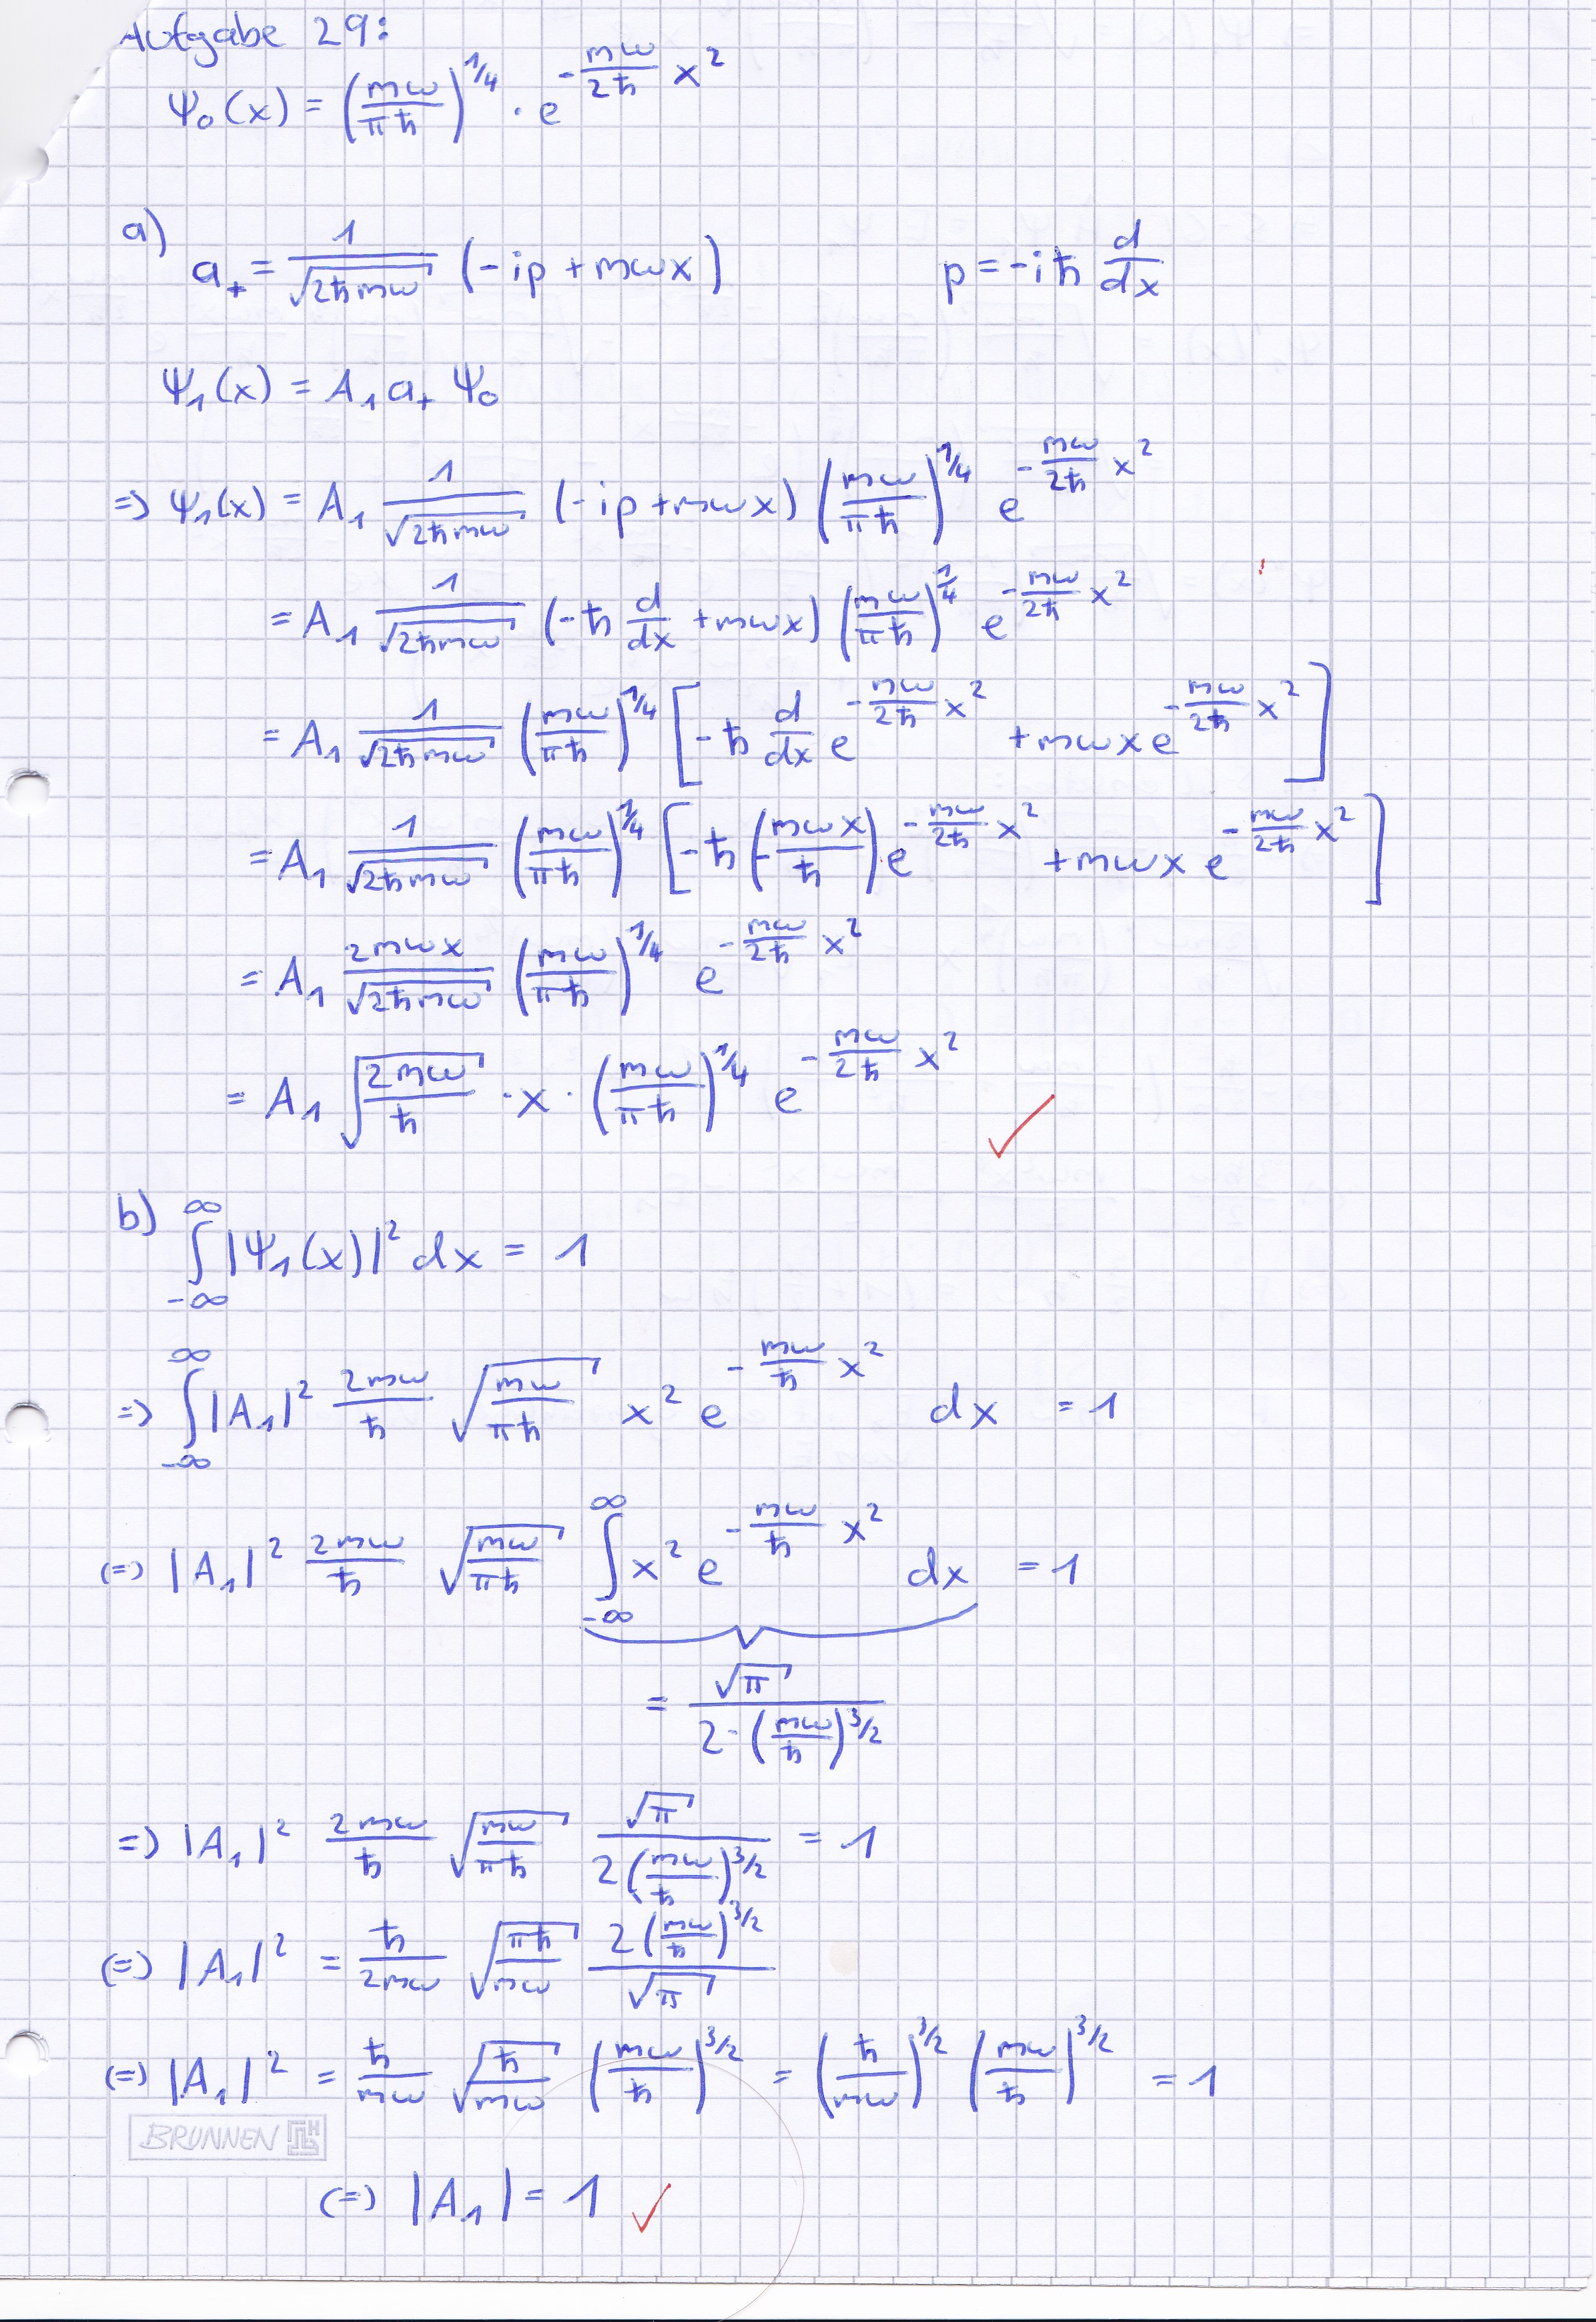 Aufgabe 29:
Ψ₀(x) = (mω/πħ)^{1/4} · e^{-mω/2ħ x²}
a) a₊ = 1/√(2ħmω) (-ip + mωx)    p = -iħ d/dx
Ψ₁(x) = A₁ a₊ Ψ₀
=> Ψ₁(x) = A₁ 1/√(2ħmω) (-ip + mωx) (mω/πħ)^{1/4} e^{-mω/2ħ x²}
= A₁ 1/√(2ħmω) (-ħ d/dx + mωx) (mω/πħ)^{1/4} e^{-mω/2ħ x²}
= A₁ 1/√(2ħmω) (mω/πħ)^{1/4} [-ħ d/dx e^{-mω/2ħ x²} + mωx e^{-mω/2ħ x²}]
= A₁ 1/√(2ħmω) (mω/πħ)^{1/4} [-ħ (-mωx/ħ) · e^{-mω/2ħ x²} + mωx e^{-mω/2ħ x²}]
= A₁ 2mωx/√(2ħmω) (mω/πħ)^{1/4} e^{-mω/2ħ x²}
= A₁ √(2mω/ħ) · x · (mω/πħ)^{1/4} e^{-mω/2ħ x²} ✓
b) ∫_{-∞}^{∞} |Ψ₁(x)|² dx = 1
=> ∫_{-∞}^{∞} |A₁|² 2mω/ħ √(mω/πħ) x² e^{-mω/ħ x²} dx = 1
(=) |A₁|² 2mω/ħ √(mω/πħ) ∫_{-∞}^{∞} x² e^{-mω/ħ x²} dx = 1
= √π/(2·(mω/ħ)^{3/2})
=> |A₁|² 2mω/ħ √(mω/πħ) √π/(2(mω/ħ)^{3/2}) = 1
(=) |A₁|² = ħ/2mω √(πħ/mω) 2(mω/ħ)^{3/2}/√π
(=) |A₁|² = ħ/mω √(ħ/mω) (mω/ħ)^{3/2} = (ħ/mω)^{3/2} (mω/ħ)^{3/2} = 1
BRUNNEN
(=) |A₁| = 1 ✓